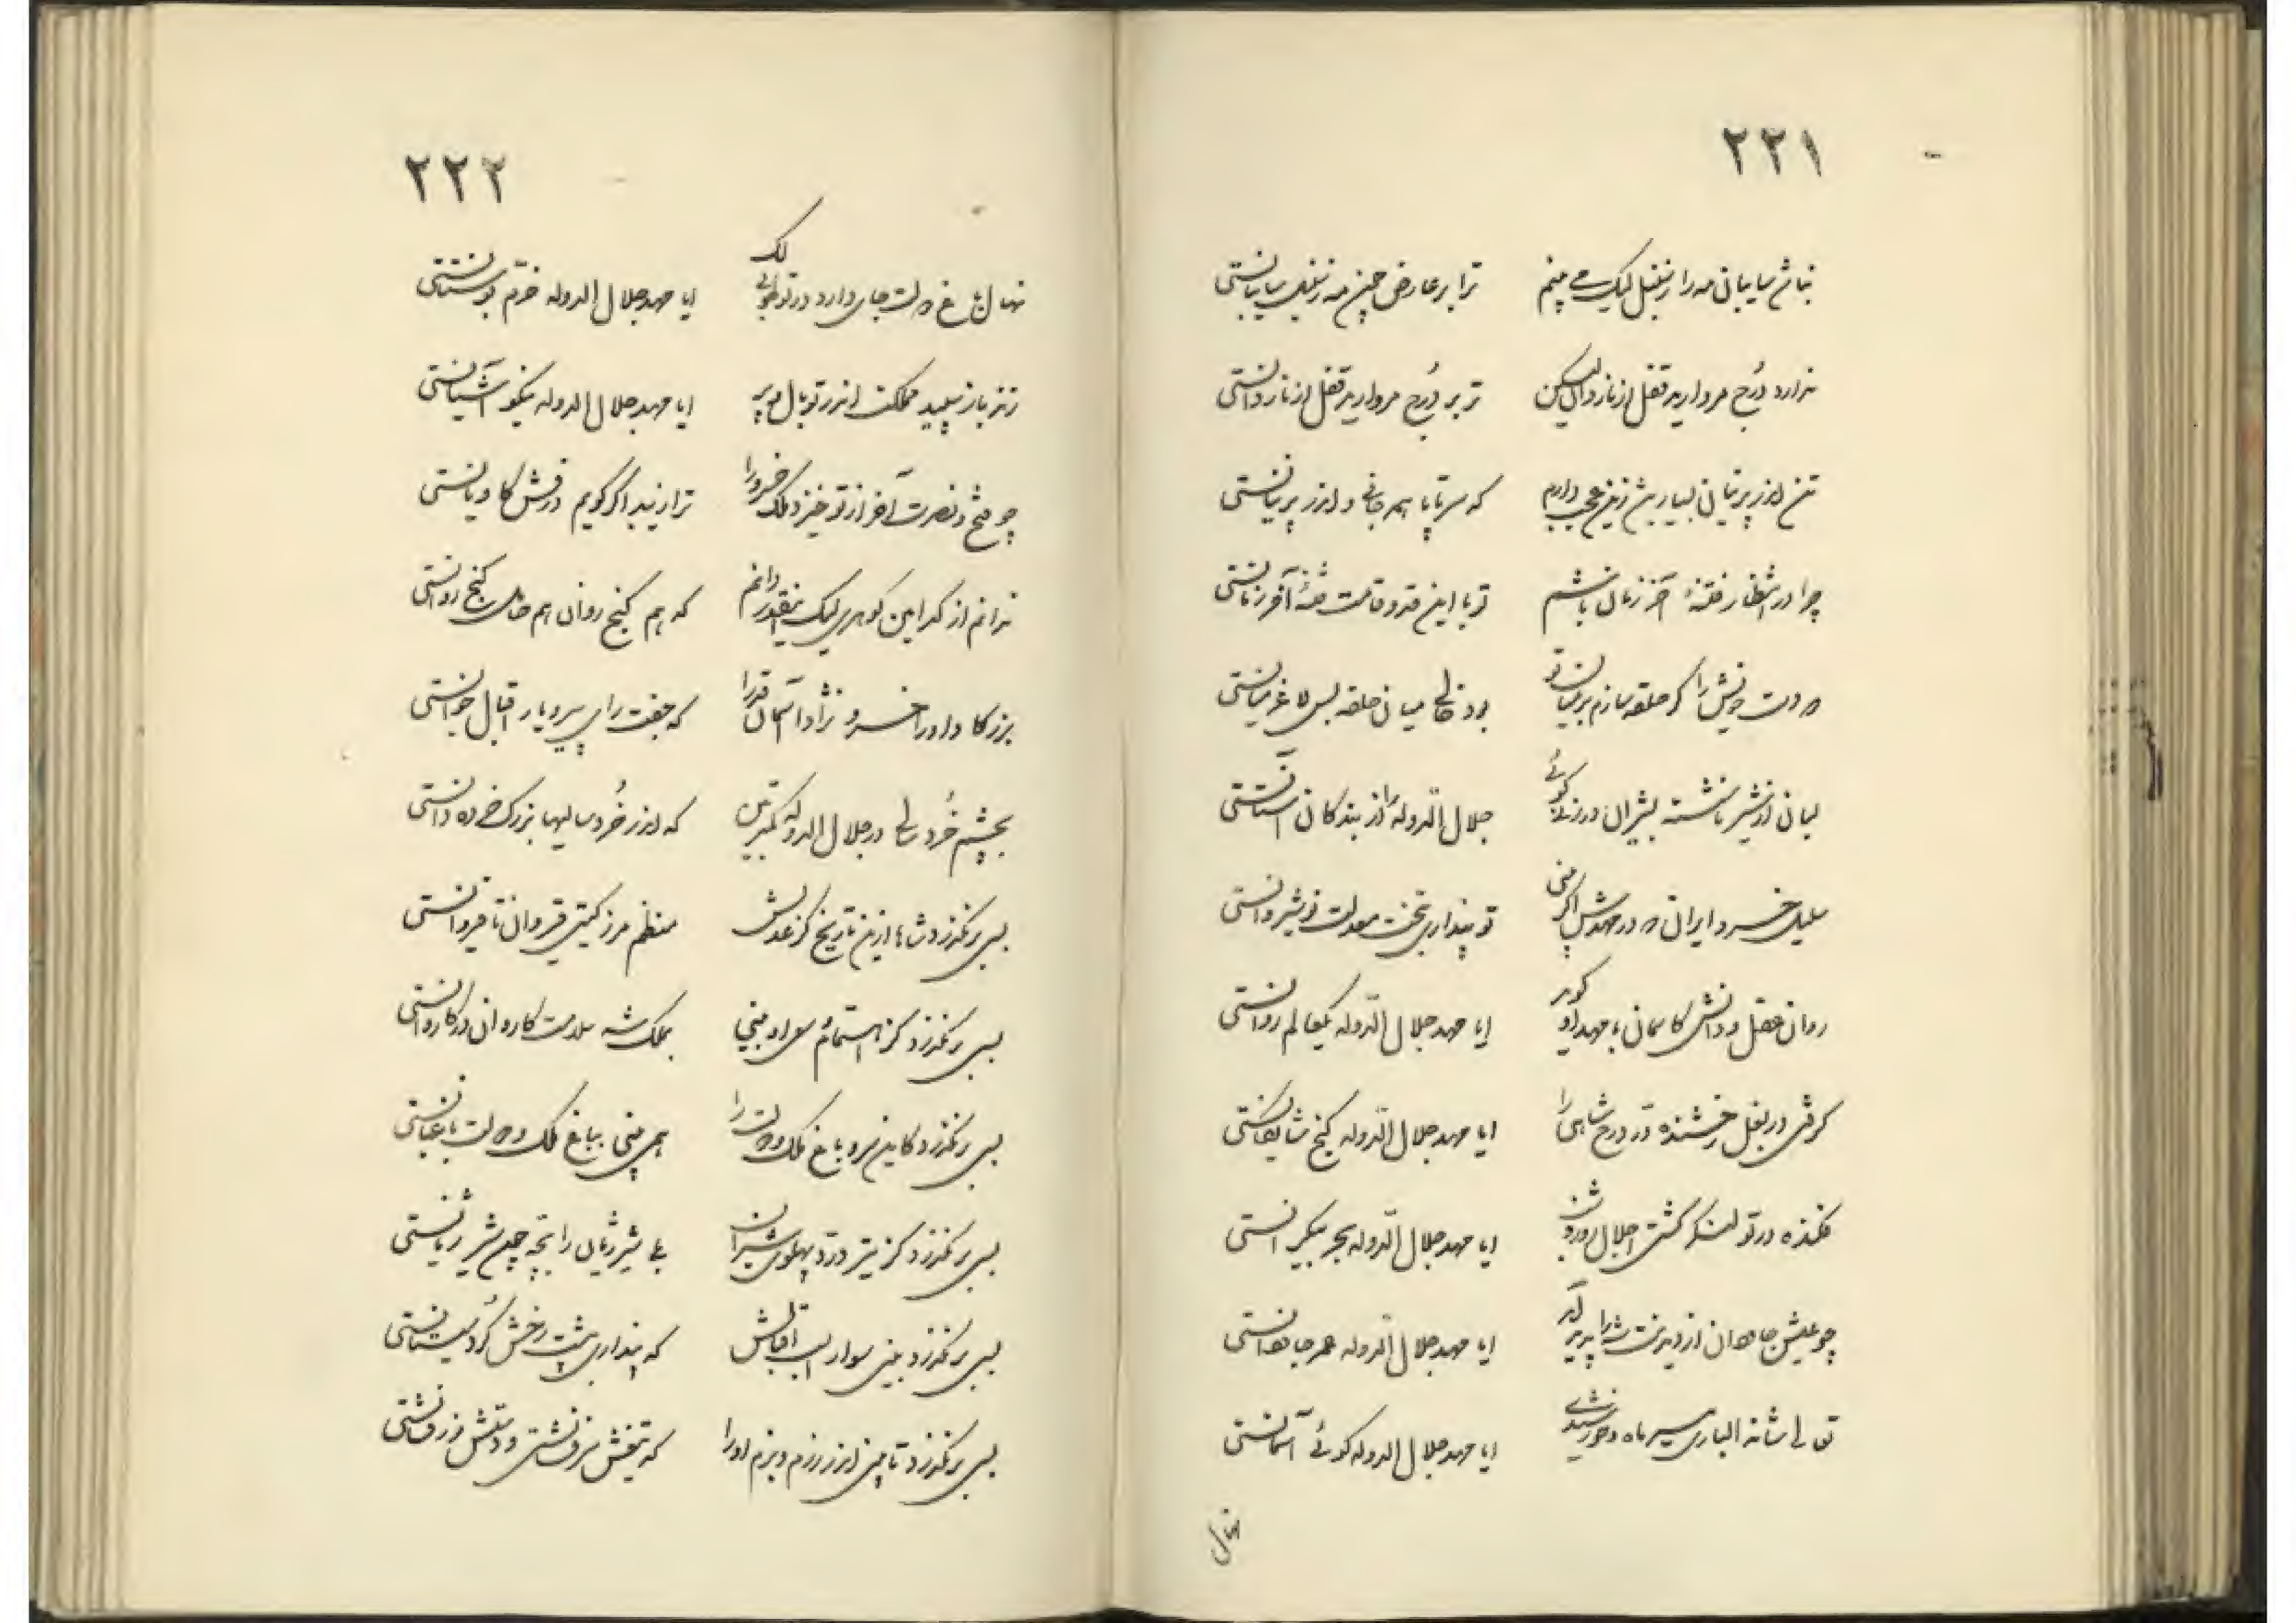 ۲۲۱
نباشد سایبانی مه را ز سنبل لیک می بینم ترا بر عارض چون مه ز سنبل سایبانستی
ندارد دُرج مروارید قفل از ناردان لیکن تو بر دُرج مروارید قفل از ناردانستی
تن اندر پرنیان بسیار دیدم زین عجب دارم که سر تا پا همه جانی و اندر پرنیانستی
چرا در انتظار فتنهٔ آخر زمان باشم تو با این قد و قامت فتنهٔ آخر زمانستی
دو دست خویش را گر حلقه سازم بر میان تو بود خالی میان حلقه بس لاغر میانستی
لبان از شیر ناشسته بشیران ورزند گوئی جلال الدوله را از بندگان آستانستی
سلیل خسرو ایران که در مهدش اگر بینی تو پنداری بتخت معدلت نوشیروانستی
روان عقل و دانش کاسمان با مهد او گوید ایا مهد جلال الدوله یکعالم روانستی
گرفتی در بغل رخشنده دُر درج شاهی را ایا مهد جلال الدوله گنج شایگانستی
فکنده در تو لنگر کشتی اجلال روز و شب ایا مهد جلال الدوله بحر بیکرانستی
چو عیش جاودان از دیدنت شه را پدید آید ایا مهد جلال الدوله عمر جاودانستی
توالی شانه الباری سپهر ماه و خورشیدی ایا مهد جلال الدوله گوئی آسمانستی
نهال
۲۲۲
نهال باغ دولت جای دارد در تو خوابی لک ایا مهد جلال الدوله خرّم بوستانستی
زند باز سپید مملکت اندر تو بال و پر ایا مهد جلال الدوله نیکو آشیانستی
چو فتح و نصرت آخر از تو خیزد ملک خسرو را ترا زیبد اگر گویم درفش کاویانستی
ندانم از کدامین گوهری لیک اینقدر دانم که هم گنج روان هم حامل گنج روانستی
بزرگا داورا خسرو نژادا آسمان قدرا که جفت رای پیر و یار اقبال جوانستی
بچشم خُردسالی در جلال الدوله کمتر بین که اندر خُردسالیها بزرگ خرده دانستی
بسی برنگذرد شاها ازین تاریخ کز عدلش منظم مرز گیتی قیروان تا قیروانستی
بسی برنگذرد کز اهتمام او بینی بملک شه سلامت کاروان در کاروانستی
بسی برنگذرد کاین سرو باغ ملک و دولت را همی بینی بباغ ملک و دولت باغبانستی
بسی برنگذرد کز تیر درّد پهلوی شیران بلی شیر ژیان را بچه چون شیر ژیانستی
بسی برنگذرد بینی سوار اسب اقبالش که پنداری بپشت رخش گُرد سیستانستی
بسی برنگذرد تا بینی اندر رزم و بزم او را که تیغش سرفشانستی و دستش زرفشانستی